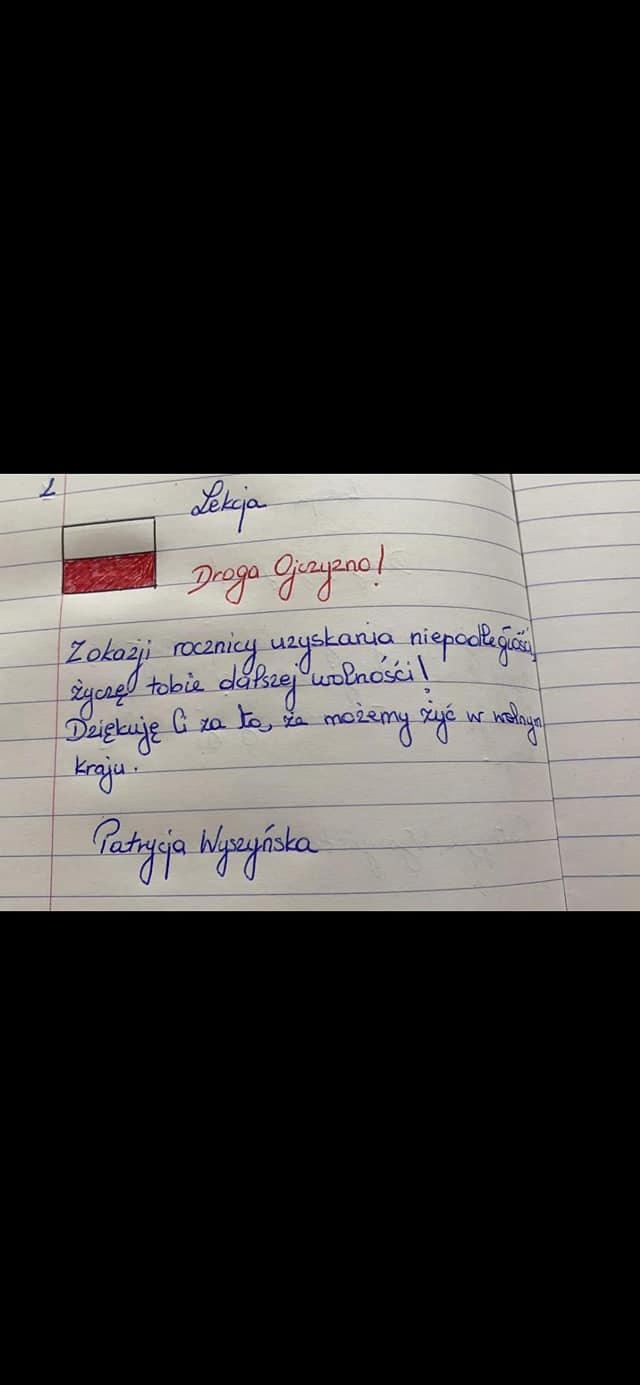 L
Lekcja
Droga Ojczyzno!
Z okazji rocznicy uzyskania niepodległości,
życzę tobie dalszej wolności!
Dziękuję Ci za to, że możemy żyć w wolnym
kraju.
Patrycja Wyszyńska